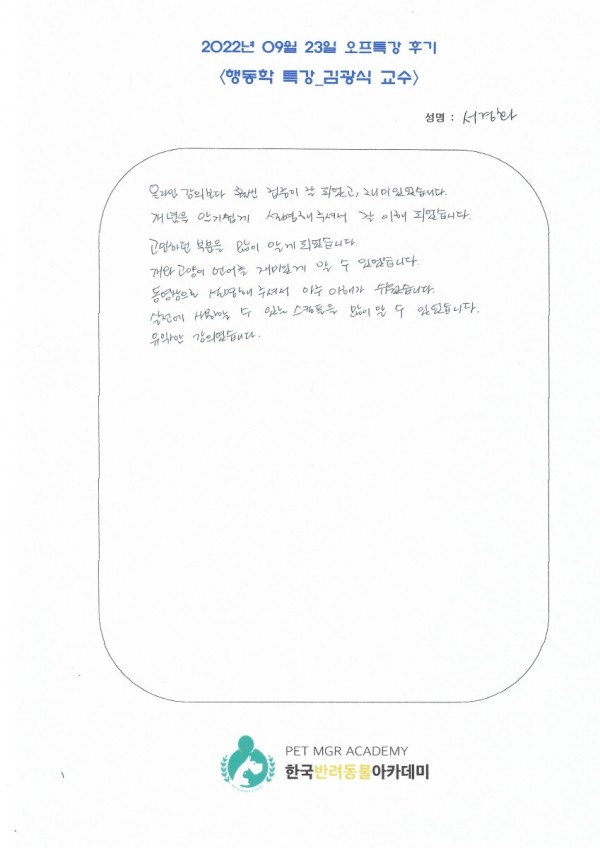 2022년 09월 23일 오프특강 후기
<행동학 특강_김광식 교수>
성명 : 서경화
온라인 강의보다 훨씬 집중이 잘 되었고, 재미있었습니다.
개념을 알기쉽게 설명해주셔서 잘 이해 되었습니다.
고민하던 부분을 많이 알게 되었습니다.
개와 고양이 언어를 재미있게 알 수 있었습니다.
동영상으로 설명해주셔서 아주 이해가 쉬웠습니다.
실전에 사용할 수 있는 스킬들을 많이 알 수 있었습니다.
유익한 강의였습니다.
PET MGR ACADEMY
한국반려동물아카데미